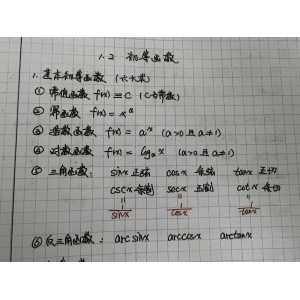 1.2 初等函数
1. 基本初等函数 (六大类)
① 常值函数 f(x) ≡ C (C为常数)
② 幂函数 f(x) = x^α
③ 指数函数 f(x) = a^x (a>0且a≠1)
④ 对数函数 f(x) = log_a x (a>0且a≠1)
⑤ 三角函数: sinx 正弦 cosx 余弦 tanx 正切
cscx 余割 secx 正割 cotx 余切
= = =
1/sinx 1/cosx 1/tanx
⑥ 反三角函数: arcsinx arccosx arctanx